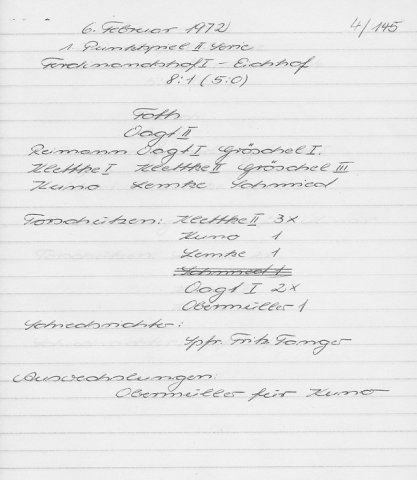 6. Februar 1972 4/145
1. Punktspiel II Serie
Ferdinandshof I - Eichhof
8:1 (5:0)
Foth
Vogt II
Reimann Vogt I Gröschel I.
Klettke I Klettke II Gröschel III
Kuno Lemke Schmied
Torschützen: Klettke II 3x
Kuno 1
Lemke 1
Schmied 1
Vogt I 2x
Obermüller 1
Schiedsrichter:
Spfr. Fritz Tanger
Auswechslungen:
Obermüller für Kuno